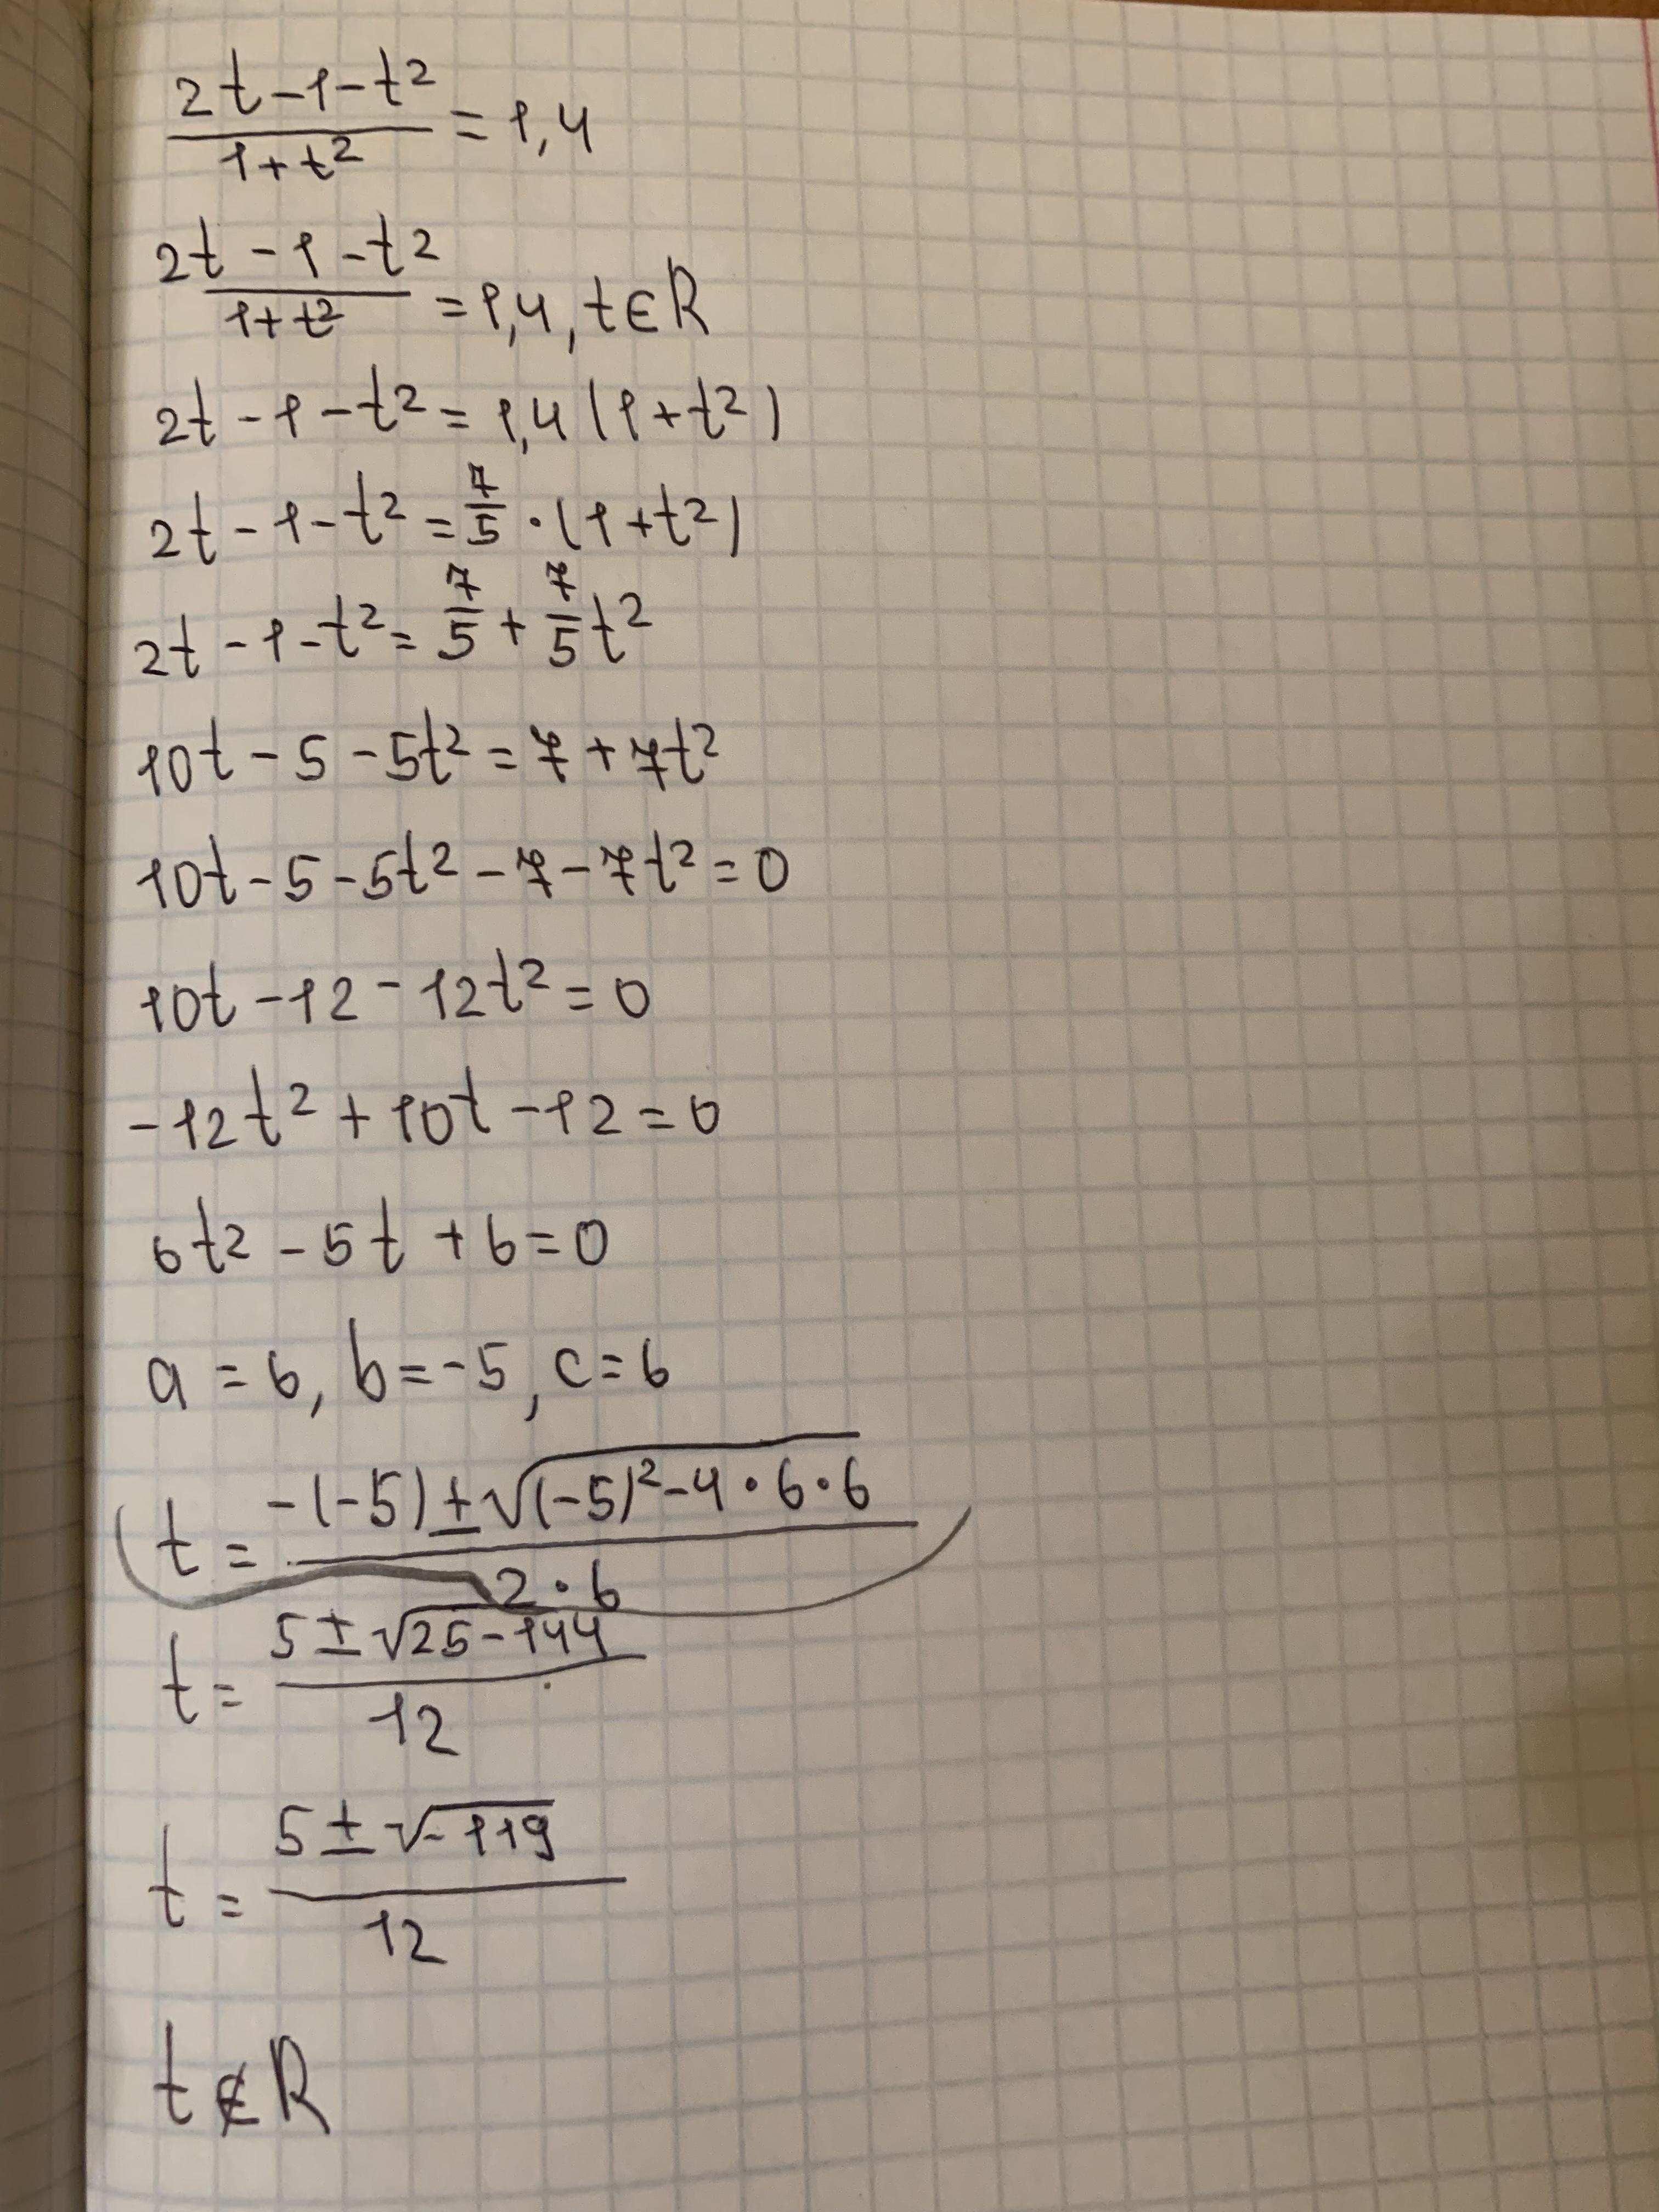 (2t-1-t²)/(1+t²) = 1,4
(2t-1-t²)/(1+t²) = 1,4, t∈R
2t-1-t² = 1,4(1+t²)
2t-1-t² = 7/5 · (1+t²)
2t-1-t² = 7/5 + 7/5t²
10t-5-5t² = 7+7t²
10t-5-5t²-7-7t² = 0
10t-12-12t² = 0
-12t²+10t-12 = 0
6t²-5t+6 = 0
a = 6, b = -5, c = 6
t = (-(-5)±√((-5)²-4·6·6))/(2·6)
t = (5±√(25-144))/12
t = (5±√(-119))/12
t∉R